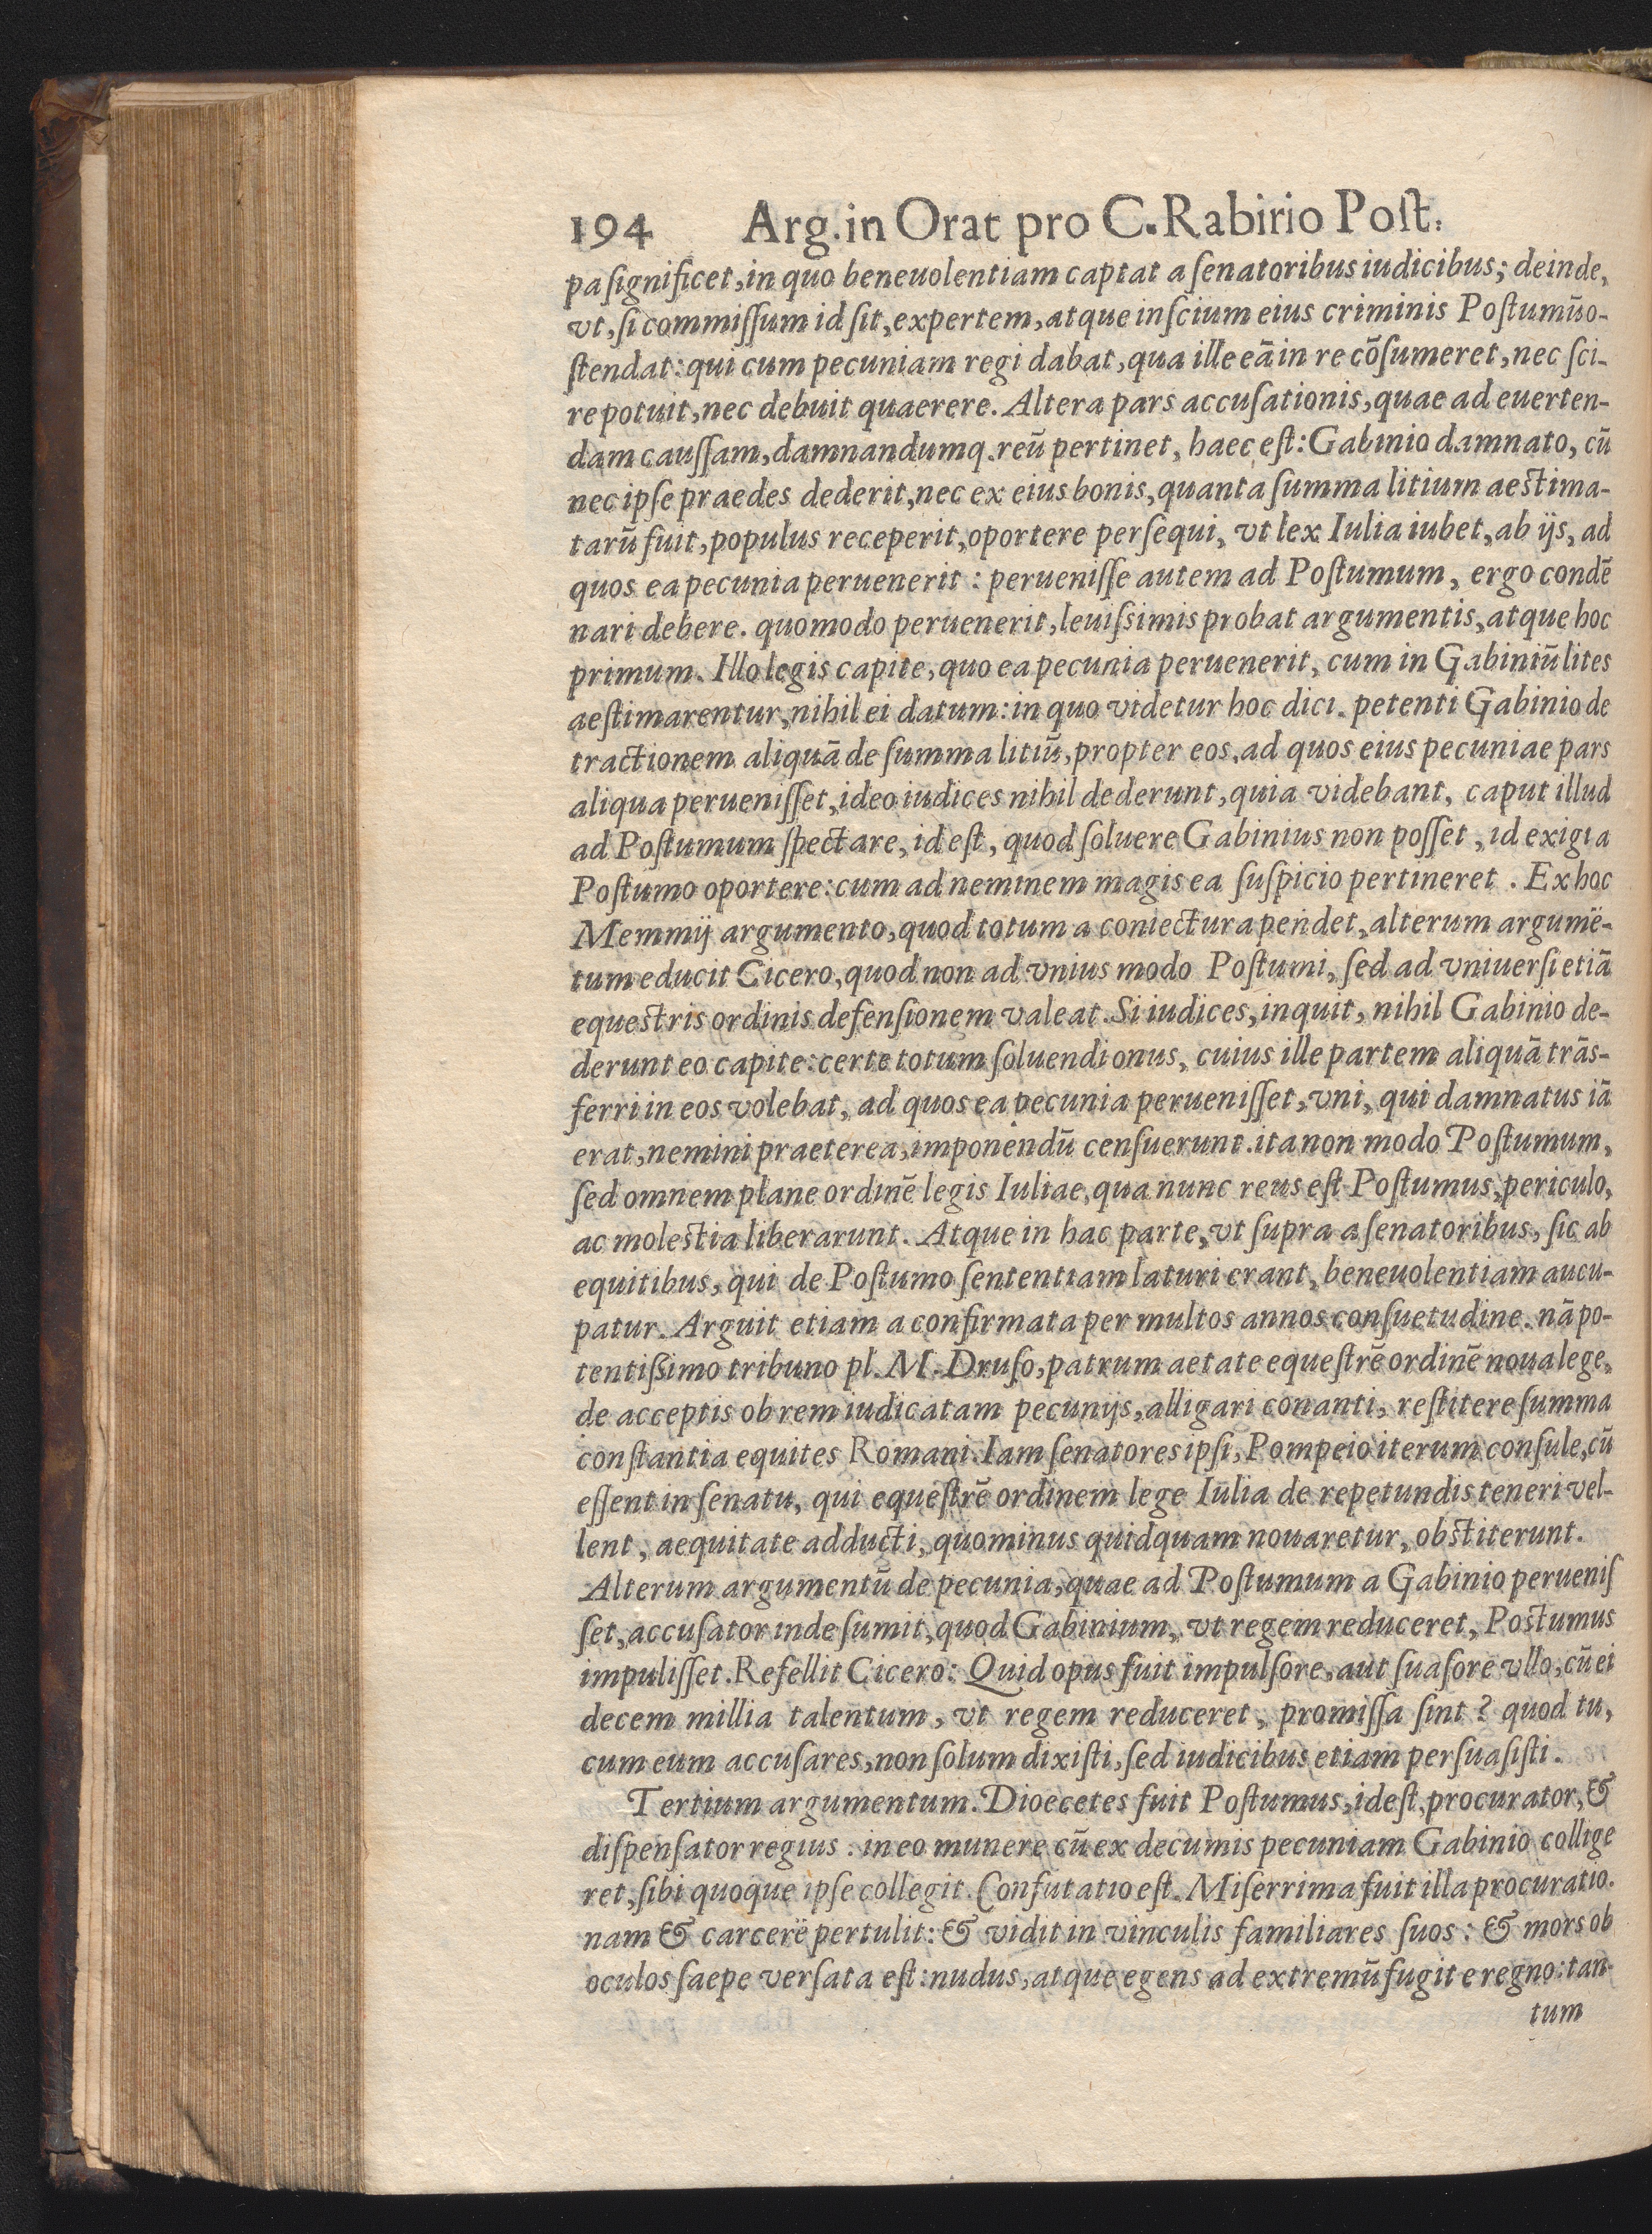 194 Arg. in Orat pro C. Rabirio Poſt.
pa ſignificet, in quo beneuolentiam captat a ſenatoribus iudicibus; deinde,
vt, ſi commiſſum id ſit, expertem, atque inſcium eius criminis Poſtumũ o-
ſtendat: qui cum pecuniam regi dabat, qua ille eã in re cõſumeret, nec ſci-
re potuit, nec debuit quaerere. Altera pars accuſationis, quae ad euerten-
dam cauſſam, damnandumq. reũ pertinet, haec eſt: Gabinio damnato, cũ
nec ipſe praedes dederit, nec ex eius bonis, quanta ſumma litium aeſtima-
tarũ fuit, populus receperit, oportere perſequi, vt lex Iulia iubet, ab ijs, ad
quos ea pecunia peruenerit: perueniſſe autem ad Poſtumum, ergo condẽ
nari debere. quomodo peruenerit, leuiſsimis probat argumentis, atque hoc
primum. Illo legis capite, quo ea pecunia peruenerit, cum in Gabiniũ lites
aeſtimarentur, nihil ei datum: in quo videtur hoc dici. petenti Gabinio de
tractionem aliquã de ſumma litiũ, propter eos, ad quos eius pecuniae pars
aliqua perueniſſet, ideo iudices nihil dederunt, quia videbant, caput illud
ad Poſtumum ſpectare, id eſt, quod ſoluere Gabinius non poſſet, id exigi a
Poſtumo oportere: cum ad neminem magis ea ſuſpicio pertineret. Ex hoc
Memmij argumento, quod totum a coniectura pendet, alterum argumẽ-
tum educit Cicero, quod non ad vnius modo Poſtumi, ſed ad vniuerſi etiã
equeſtris ordinis defenſionem valeat. Si iudices, inquit, nihil Gabinio de-
derunt eo capite: certe totum ſoluendi onus, cuius ille partem aliquã trãs-
ferri in eos volebat, ad quos ea pecunia perueniſſet, vni, qui damnatus iã
erat, nemini praeterea, imponendũ cenſuerunt. ita non modo Poſtumum,
ſed omnem plane ordinẽ legis Iuliae, qua nunc reus eſt Poſtumus, periculo,
ac moleſtia liberarunt. Atque in hac parte, vt ſupra a ſenatoribus, ſic ab
equitibus, qui de Poſtumo ſententiam laturi erant, beneuolentiam aucu-
patur. Arguit etiam a confirmata per multos annos conſuetudine. nã po-
tentiſsimo tribuno pl. M. Druſo, patrum aetate equeſtrẽ ordinẽ noua lege,
de acceptis ob rem iudicatam pecunijs, alligari conanti, reſtitere ſumma
conſtantia equites Romani. Iam ſenatores ipſi, Pompeio iterum conſule, cũ
eſſent in ſenatu, qui equeſtrẽ ordinem lege Iulia de repetundis teneri vel-
lent, aequitate adducti, quominus quidquam nouaretur, obſtiterunt.
Alterum argumentũ de pecunia, quae ad Poſtumum a Gabinio perueniſ
ſet, accuſator inde ſumit, quod Gabinium, vt regem reduceret, Poſtumus
impuliſſet. Refellit Cicero: Quid opus fuit impulſore, aut ſuaſore vllo, cũ ei
decem millia talentum, vt regem reduceret, promiſſa ſint? quod tu,
cum eum accuſares, non ſolum dixiſti, ſed iudicibus etiam perſuaſiſti.
Tertium argumentum. Dioecetes fuit Poſtumus, ideſt, procurator, &
diſpenſator regius: in eo munere cũ ex decumis pecuniam Gabinio collige
ret, ſibi quoque ipſe collegit. Confutatio eſt. Miſerrima fuit illa procuratio.
nam & carcerẽ pertulit: & vidit in vinculis familiares ſuos: & mors ob
oculos ſaepe verſata eſt: nudus, atque egens ad extremũ fugit e regno: tan-
tum